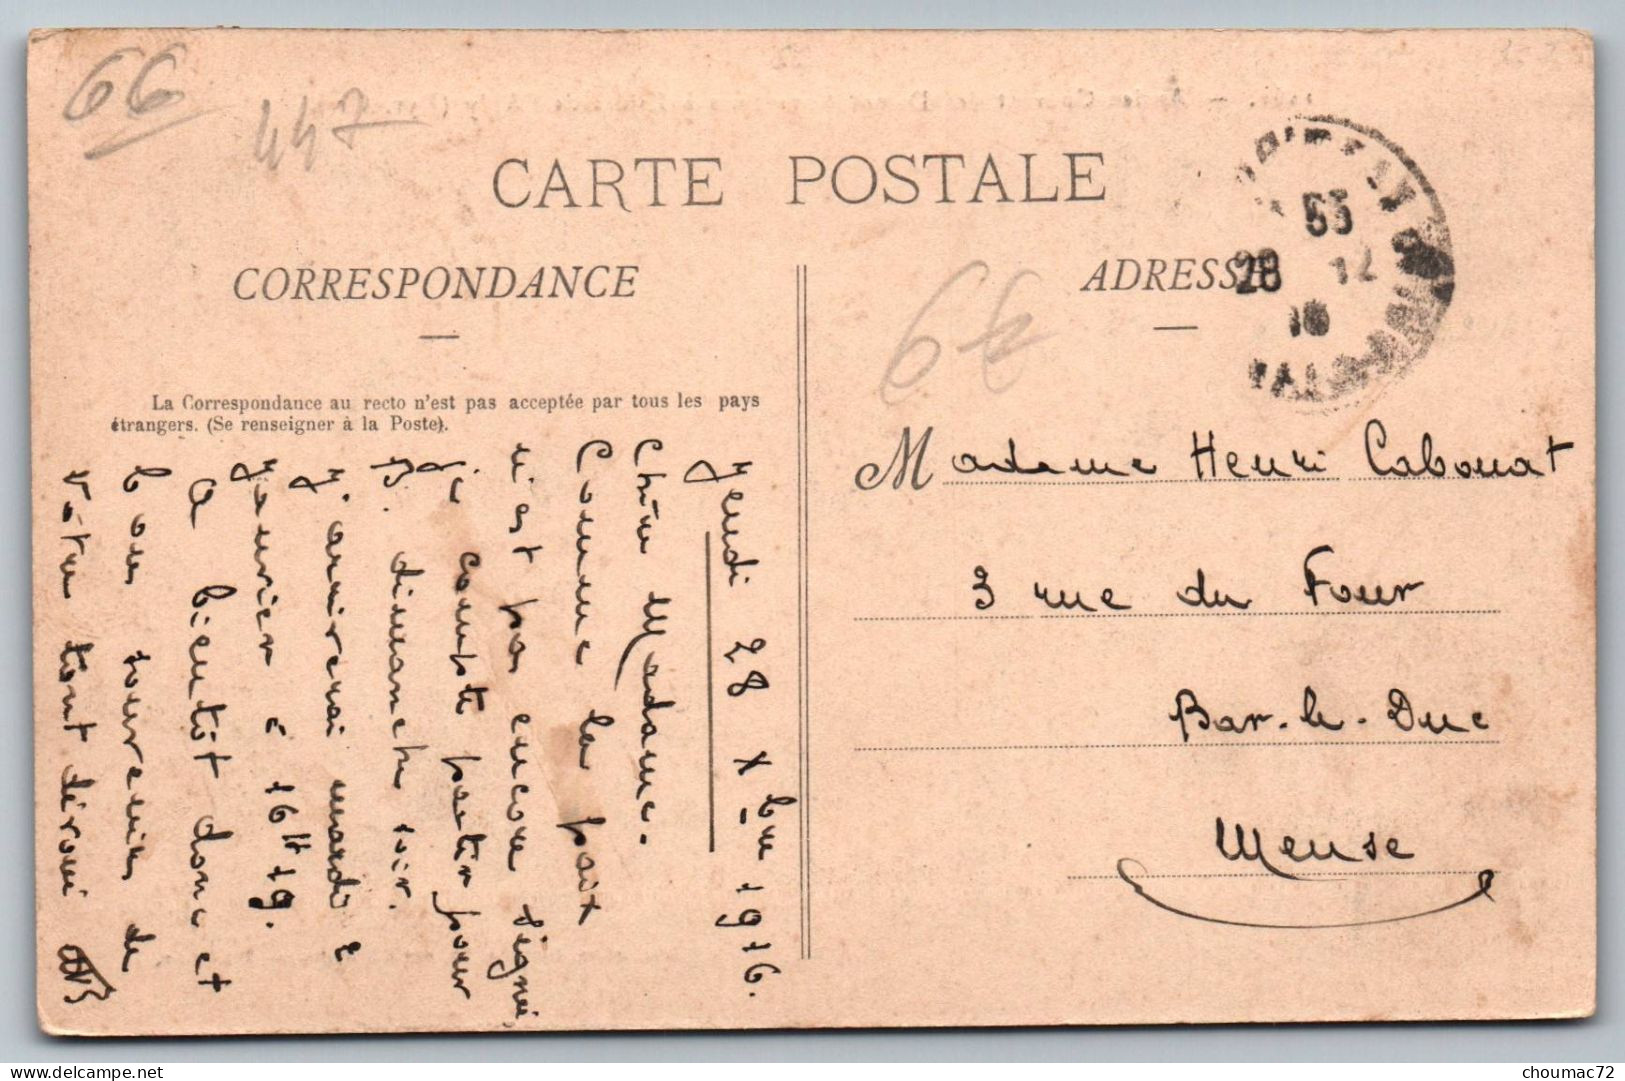 66
447
CARTE POSTALE
CORRESPONDANCE
ADRESSE
28 12
16
66
La Correspondance au recto n'est pas acceptée par tous les pays
étrangers. (Se renseigner à la Poste).
Jeudi 28 Xbre 1916.
Chère Madame.
Comme la paix
n'est pas encore signée,
je compte partir pour
B. dimanche soir.
J'arriverai mardi 2
Janvier à 16h 19.
A bientôt donc et
bons souvenirs de
votre tout dévoué
Madame Henri Cabouat
3 rue du Four
Bar-le-Duc
Meuse
delcampe.net
choumac72